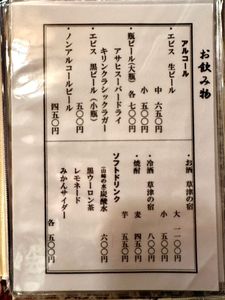 お飲み物
アルコール
・エビス 生ビール
中 六五〇円
小 五〇〇円
・瓶ビール(大瓶) 各 七〇〇円
アサヒスーパードライ
キリンクラシックラガー
・エビス 黒ビール(小瓶)
五〇〇円
・ノンアルコールビール
四五〇円
・お酒 草津の宿
大 一一〇〇円
小 五五〇円
・冷酒 草津の宿
八〇〇円
・焼酎 麦 四五〇円
芋 五五〇円
ソフトドリンク
山崎の水 炭酸水
六〇〇円
黒ウーロン茶
レモネード
みかんサイダー
各 五〇〇円